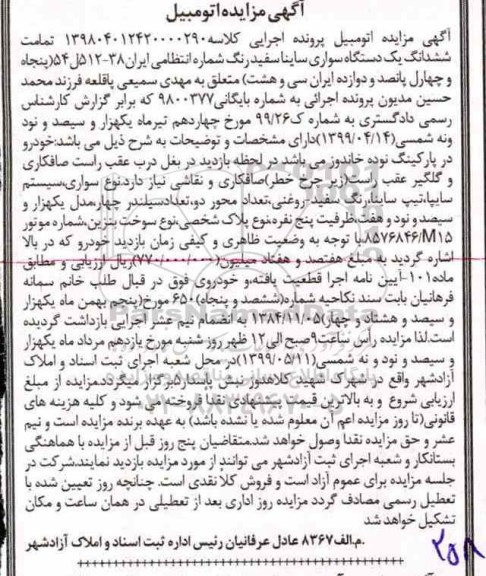 آگهی مزایده اتومبیل
آگهی مزایده اتومبیل پرونده اجرایی کلاسه ۱۳۹۸۰۴۰۱۲۴۲۰۰۰۰۲۹۰ تمامت
ششدانگ یک دستگاه سواری ساینا سفید رنگ شماره انتظامی ایران ۳۸-۵۱۲ل۵۴(پنجاه
و چهارل پانصد و دوازده ایران سی و هشت) متعلق به مهدی سمیعی پاقلعه فرزند محمد
حسین مدیون پرونده اجرائی به شماره بایگانی ۹۸۰۰۳۷۷ که برابر گزارش کارشناس
رسمی دادگستری به شماره ک۹۹/۲۶ مورخ چهاردهم تیرماه یکهزار و سیصد و نود
ونه شمسی(۱۳۹۹/۰۴/۱۴)دارای مشخصات و توضیحات به شرح ذیل می باشد:خودرو
در پارکینگ نوده خاندوز می باشد در لحظه بازدید در بغل درب عقب راست صافکاری
و گلگیر عقب راست چرخ خطر)صافکاری و نقاشی نیاز دارد.نوع سواری،سیستم
سایپا،تیپ ساینا،رنگ سفید-روغنی،تعداد محور دو،تعدادسیلندر چهار،مدل یکهزار و
سیصد و نود و هفت،ظرفیت پنج نفره،نوع پلاک شخصی،نوع سوخت بنزین،شماره موتور
۸۵۷۶۸۴۶/M۱۵با توجه به وضعیت ظاهری و کیفی زمان بازدید خودرو که در بالا
اشاره گردید به مبلغ هفتصد و هفتاد میلیون(۷۷۰/۰۰۰/۰۰۰)ریال ارزیابی و مطابق
ماده۱۰۱-آیین نامه اجرا قطعیت یافته،و خودروی فوق در قبال طلب خانم سمانه
فرهانیان بابت سند نکاحیه شماره(ششصد و پنجاه)۶۵۰ مورخ(پنجم بهمن ماه یکهزار
و سیصد و هشتاد و چهار)۱۳۸۴/۱۱/۰۵ به انضمام نیم عشر اجرایی بازداشت گردیده
است.لذا مزایده راس ساعت۹صبح الی۱۲ ظهر روز شنبه مورخ یازدهم مرداد ماه یکهزار
و سیصد و نود و نه شمسی(۱۳۹۹/۰۵/۱۱)در محل شعبه اجرای ثبت اسناد و املاک
آزادشهر واقع در شهرک شهید کلاهدوز نبش پاسدار۵برگزار میگردد.مزایده از مبلغ
ارزیابی شروع و به بالاترین قیمت پیشنهادی نقدا فروخته می شود و کلیه هزینه های
قانونی(تا روز مزایده اعم آن معلوم شده یا نشده باشد) به عهده برنده مزایده است و نیم
عشر و حق مزایده نقدا وصول خواهد شد.متقاضیان پنج روز قبل از مزایده با هماهنگی
بستانکار و شعبه اجرای ثبت آزادشهر می توانند از مورد مزایده بازدید نمایند.شرکت در
جلسه مزایده برای عموم آزاد است و فروش کلا نقدی است. چنانچه روز تعیین شده با
تعطیل رسمی مصادف گردد مزایده روز اداری بعد از تعطیلی در همان ساعت و مکان
تشکیل خواهد شد
م.الف۸۳۶۷ عادل عرفانیان رئیس اداره ثبت اسناد و املاک آزادشهر
۲۵۸